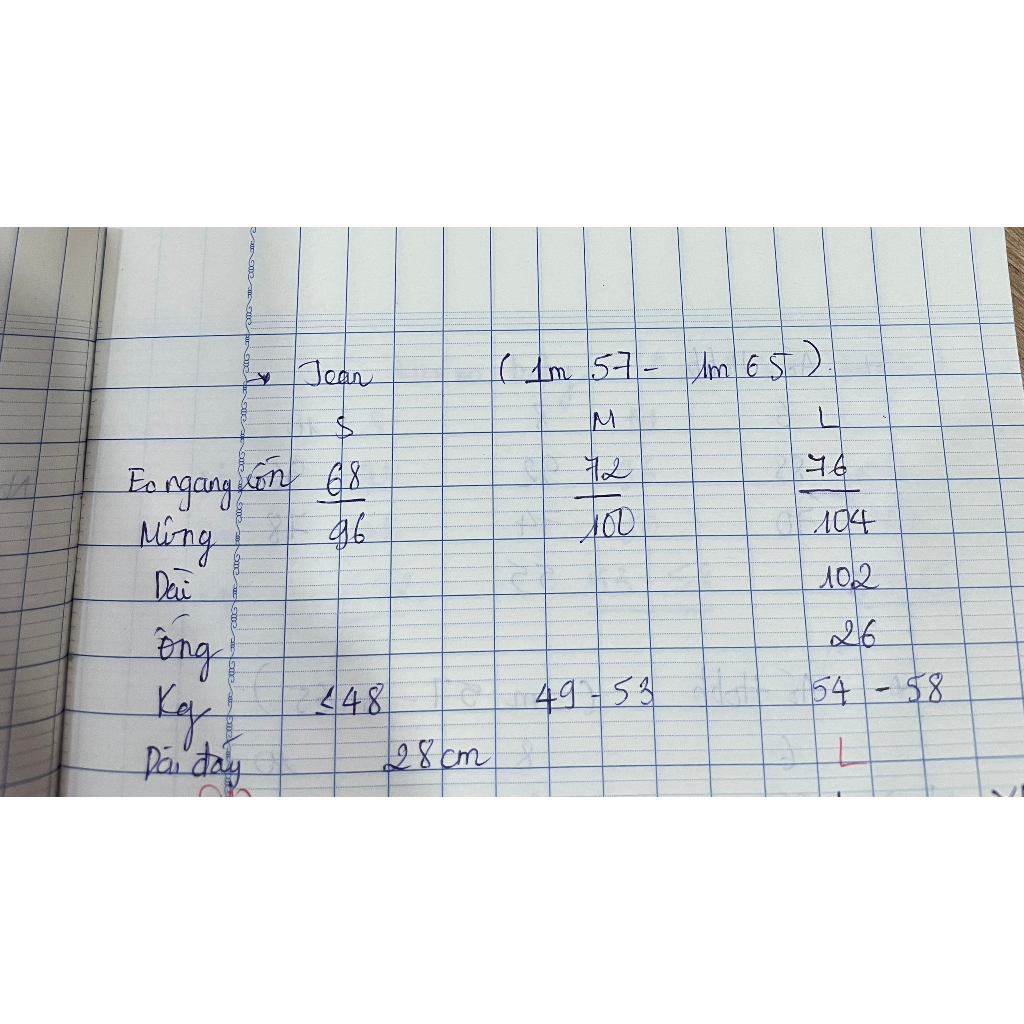 → Jean (1m 57 - 1m 65)
S M L
Eo ngang rốn 68 72 76
Mông 96 100 104
Dài 102
ống 26
Kg ≤48 49 - 53 54 - 58
Dài đáy 28cm L